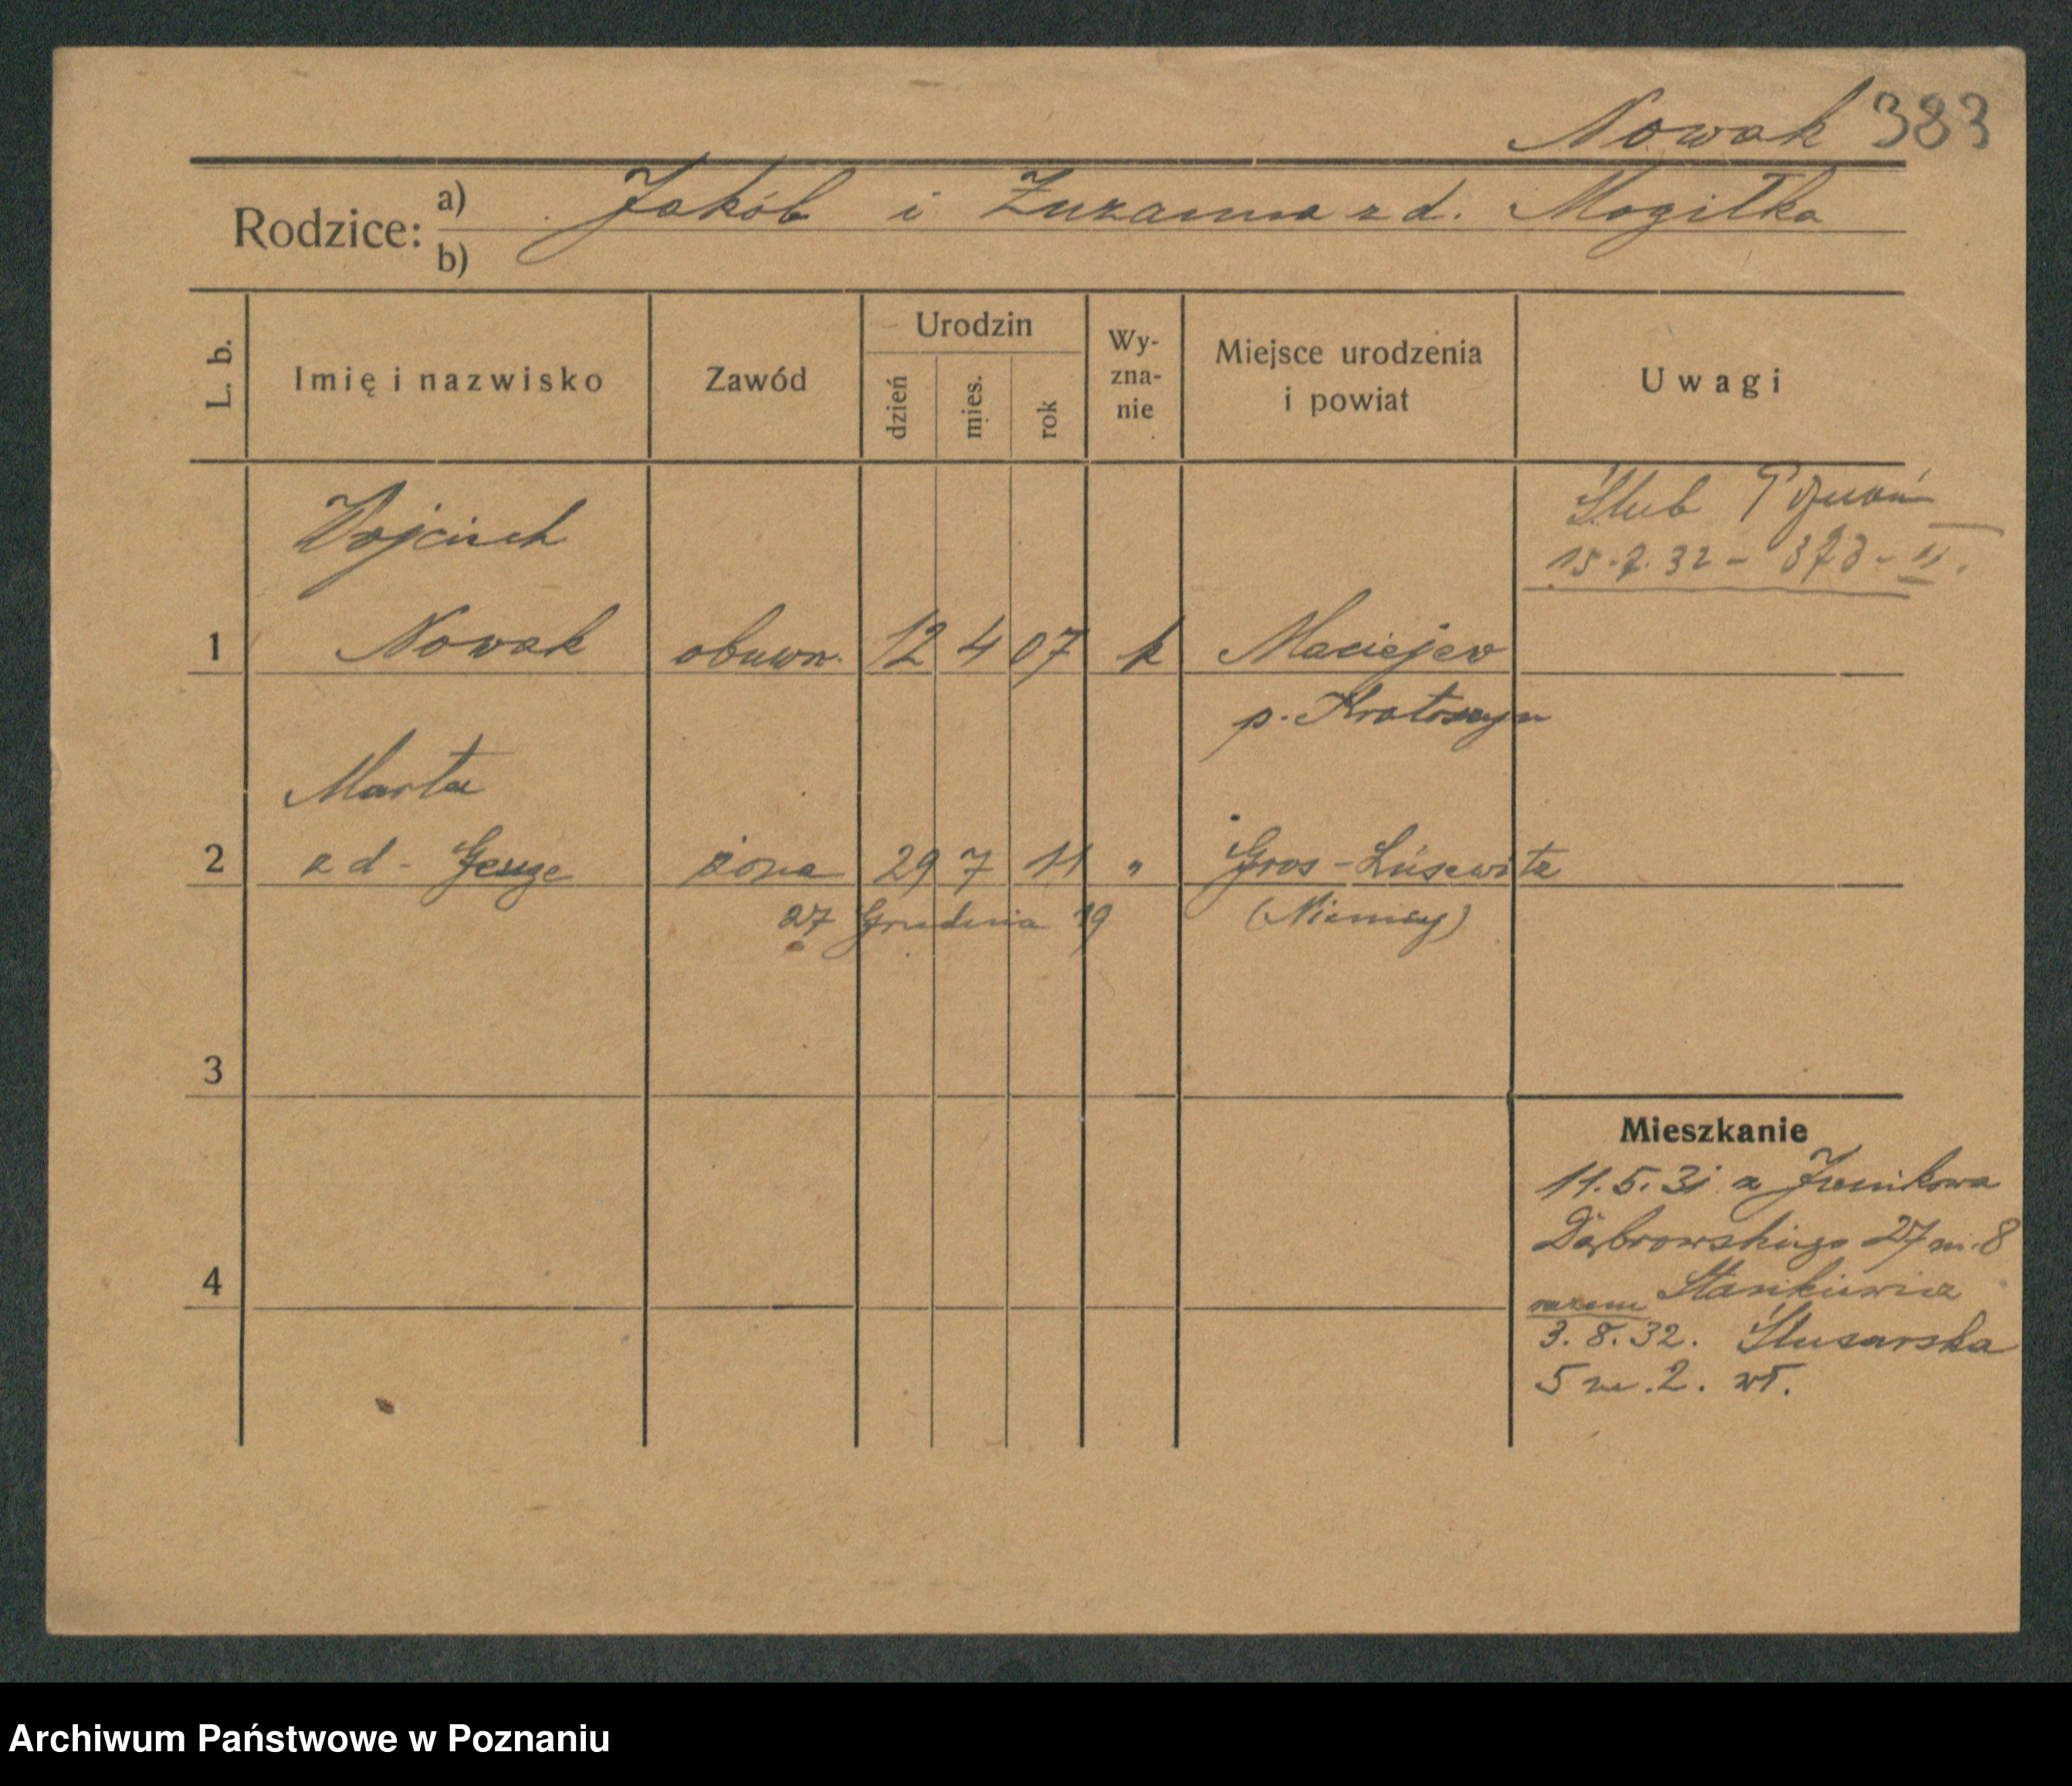 Nowak 383
Rodzice: a) Jakób i Zuzanna z d. Mogiłka
b)
L. b.
Imię i nazwisko
Zawód
Urodzin
dzień
mies.
rok
Wy-
zna-
nie
Miejsce urodzenia
i powiat
Uwagi
Ślub Poznań
15.7.32 - 373 - II.
Wojciech
1 Nowak obuwn. 12 4 07 k Maciejew
p. Krotoszyn
Marta
2 z d - żona 29 7 11 " Gros - Lüsewitz
27 Grudnia 19 (Niemcy)
3
Mieszkanie
11.5.31 z
Dąbrowskiego 27 m. 8
4
razem Stankiewicz
3. 8. 32. Ślusarska
5 m. 2. wł.
Archiwum Państwowe w Poznaniu